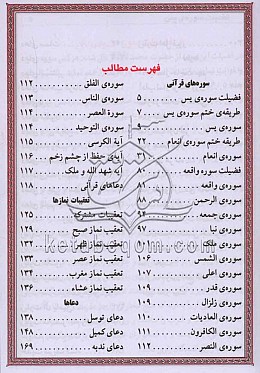 فهرست مطالب
سوره‌های قرآنی
فضیلت سوره‌ی یس ۵
طریقه‌ی ختم سوره‌ی یس ۷
سوره‌ی یس
طریقه ختم سوره‌ی انعام ۲۲
سوره‌ی انعام ۳۱
فضیلت سوره واقعه ۸۰
سوره‌ی واقعه ۸۱
سوره‌ی الرحمن ۸۸
سوره‌ی جمعه ۹۴
سوره‌ی نبا ۹۷
سوره‌ی ملک
سوره‌ی الشمس ۱۰۶
سوره‌ی اعلی ۱۰۷
سوره‌ی قدر ۱۰۹
سوره‌ی زلزال ۱۰۹
سوره‌ی العادیات ۱۱۰
سوره‌ی الکافرون ۱۱۱
سوره‌ی النصر ۱۱۲
سوره‌ی الفلق ۱۱۲
سوره‌ی الناس ۱۱۳
سورة العصر ۱۱۴
سوره‌ی التوحید ۱۱۴
آیة الکرسی ۱۱۵
آیه‌ی حفظ از چشم زخم ۱۱۶
آیه شهد الله و ملک ۱۱۷
دعاهای قرآنی ۱۱۸
تعقیبات نمازها
تعقیبات مشترک ۱۲۵
تعقیب نماز صبح ۱۲۹
تعقیب نماز ظهر ۱۳۲
تعقیب نماز عصر ۱۳۳
تعقیب نماز مغرب ۱۳۴
تعقیب نماز عشاء ۱۳۶
دعاها
دعای توسل ۱۳۸
دعای کمیل ۱۴۸
دعای ندبه ۱۶۹